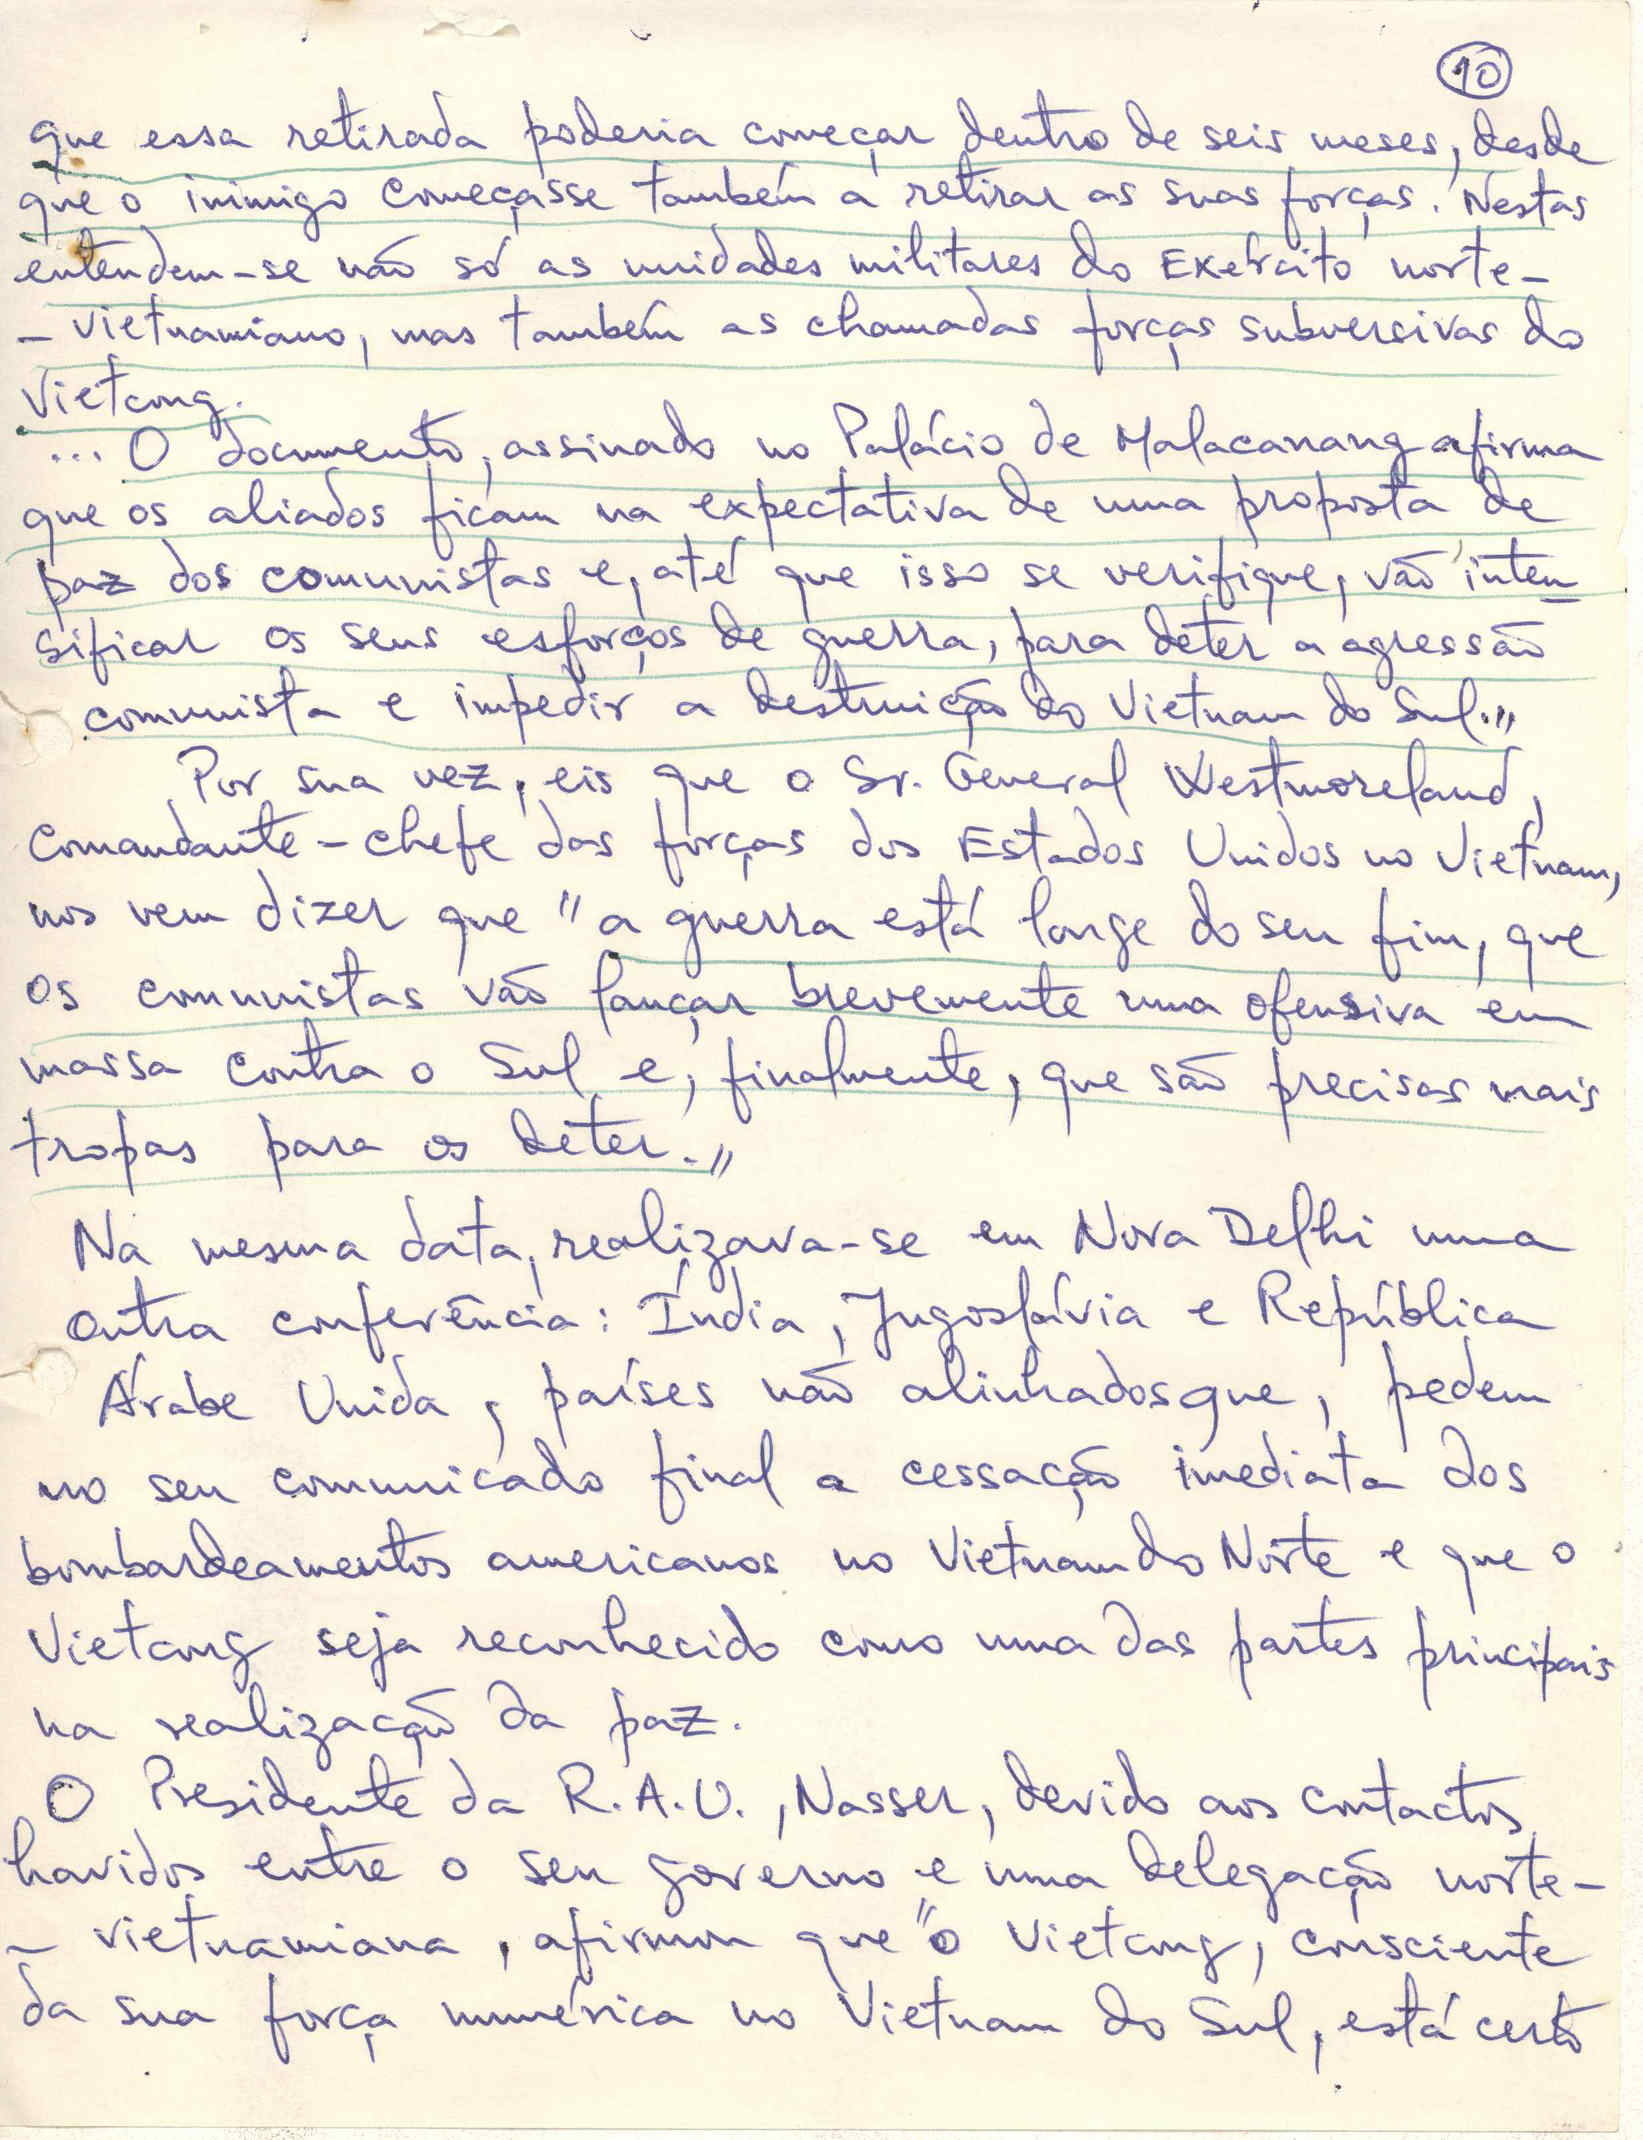 10
que essa retirada poderia começar dentro de seis meses, desde
que o inimigo começasse também a retirar as suas forças. Nestas
entendem-se não só as unidades militares do Exército norte-
- vietnamiano, mas também as chamadas forças subversivas do
Vietcong.
... O documento, assinado no Palácio de Malacanang afirma
que os aliados ficam na expectativa de uma proposta de
paz dos comunistas e, até que isso se verifique, vão inten-
sificar os seus esforços de guerra, para deter a agressão
comunista e impedir a destruição do Vietnam do Sul."
Por sua vez, eis que o Sr. General Westmoreland,
comandante-chefe das forças dos Estados Unidos no Vietnam,
nos vem dizer que "a guerra está longe do seu fim, que
os comunistas vão lançar brevemente uma ofensiva em
massa contra o Sul e, finalmente, que são precisas mais
tropas para os deter."
Na mesma data, realizava-se em Nova Delhi uma
outra conferência: Índia, Jugoslávia e República
Árabe Unida, países não alinhados que, pedem
no seu comunicado final a cessação imediata dos
bombardeamentos americanos no Vietnam do Norte e que o
Vietcong seja reconhecido como uma das partes principais
na realização da paz.
O Presidente da R.A.U., Nasser, devido aos contactos
havidos entre o seu governo e uma delegação norte-
- vietnamiana, afirmou que "o Vietcong, consciente
da sua força numérica no Vietnam do Sul, está certo